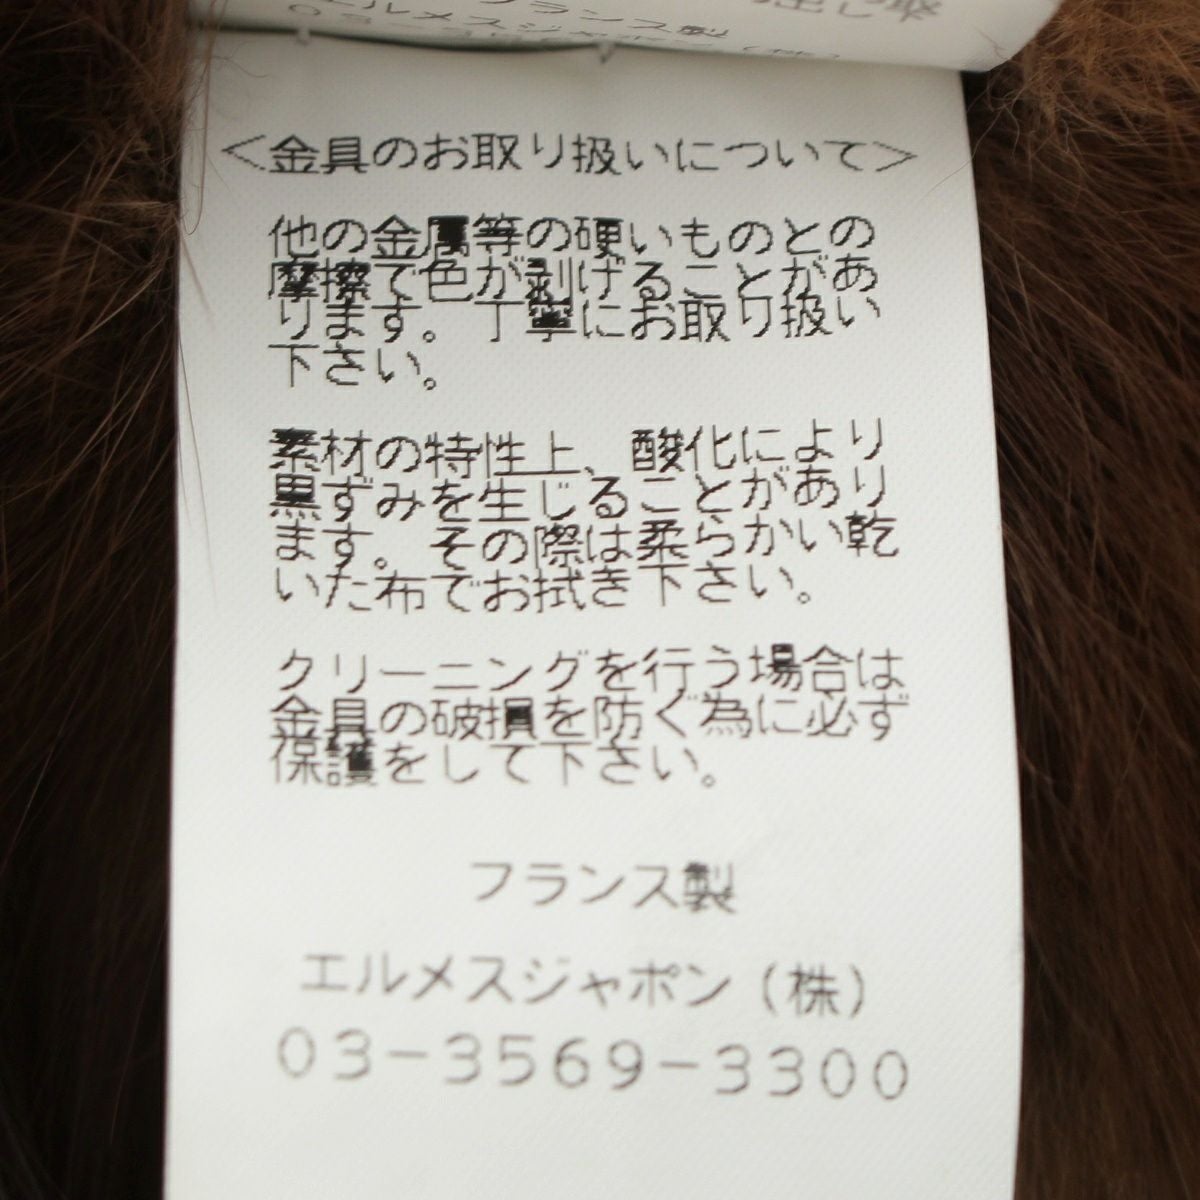 フランス製
エルメスジャポン(株)
<金具のお取り扱いについて>
他の金属等の硬いものとの
摩擦で色が剥げることがあ
ります。丁寧にお取り扱い
下さい。
素材の特性上、酸化により
黒ずみを生じることがあり
ます。その際は柔らかい乾
いた布でお拭き下さい。
クリーニングを行う場合は
金具の破損を防ぐ為に必ず
保護をして下さい。
フランス製
エルメスジャポン(株)
03-3569-3300